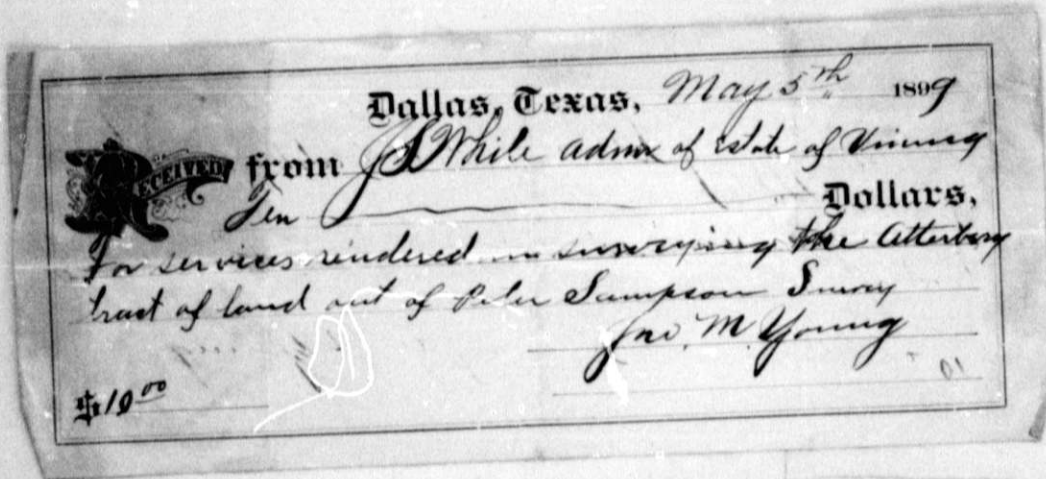 Dallas, Texas, May 5th 1899
RECEIVED from J S White admr of Estate of
Ten Dollars,
for services rendered in surveying the Atterberry
tract of land out of Peter Sampson Survey
Jno. M. Young
$10.00